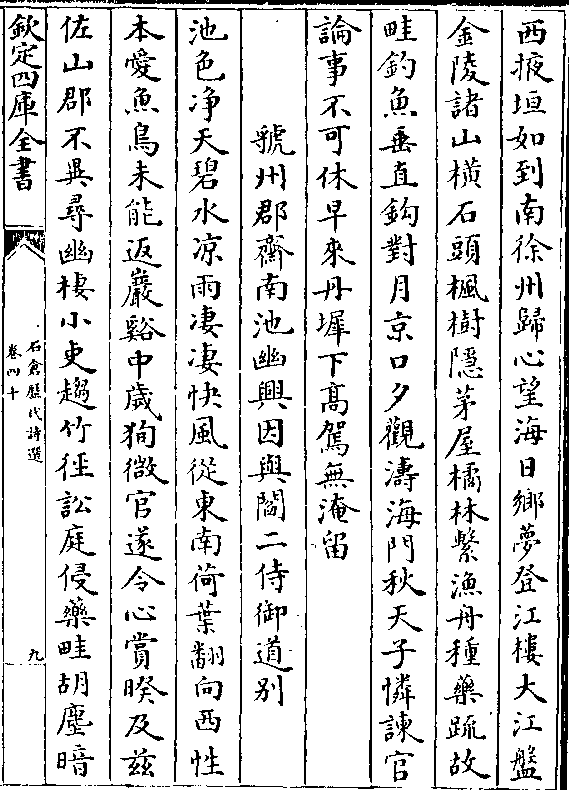 西掖垣如到南徐州歸心望海日鄉夢登江樓大江盤
金陵諸山橫石頭楓樹隱茅屋橘林繫漁舟種藥疏故
畦釣魚垂直鈎對月京口夕觀濤海門秋天子憐諫官
論事不可休早來丹墀下高駕無淹留
虢州郡齋南池幽興因與閻二侍御道别
池色净天碧水凉雨凄凄快風從東南荷葉翻向西性
本愛魚鳥未能返巖谿中歲狥微官遂令心賞暌及兹
佐山郡不異尋幽棲小吏趨竹徑訟庭侵藥畦胡塵暗
欽定四庫全書
石倉歷代詩選
卷四十
九